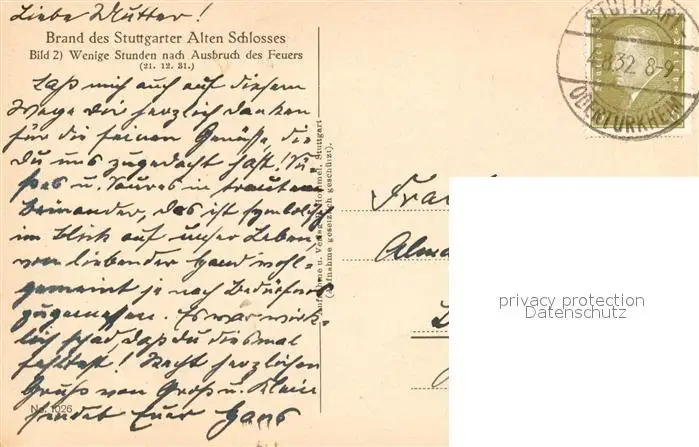 Liebe Mutter!
Brand des Stuttgarter Alten Schlosses
Bild 2) Wenige Stunden nach Ausbruch des Feuers
(21. 12. 31.)
Laß mich auch auf diesem
Wege dir herzlich danken
für die feinen Genüsse, die
Du uns zugedacht hast! Sü-
ßes u. Saures in trautem
Beinander, das ist symbolisch
im Blick auf unser Leben
von liebender Hand wohl-
gemeint je nach Bedürfnis
zugemessen. Es war wirk-
lich schad, daß du diesmal
fehltest! Recht herzlichen
Gruß von Groß u. Klein
sendet Euer Hans
No. 1026
Aufnahme u. Verlag Hommel, Stuttgart
(Aufnahme gesetzlich geschützt).
STUTTGART-
4.8.32. 8-9
OBERTÜRKHEIM
Frau
Alma
privacy protection
Datenschutz